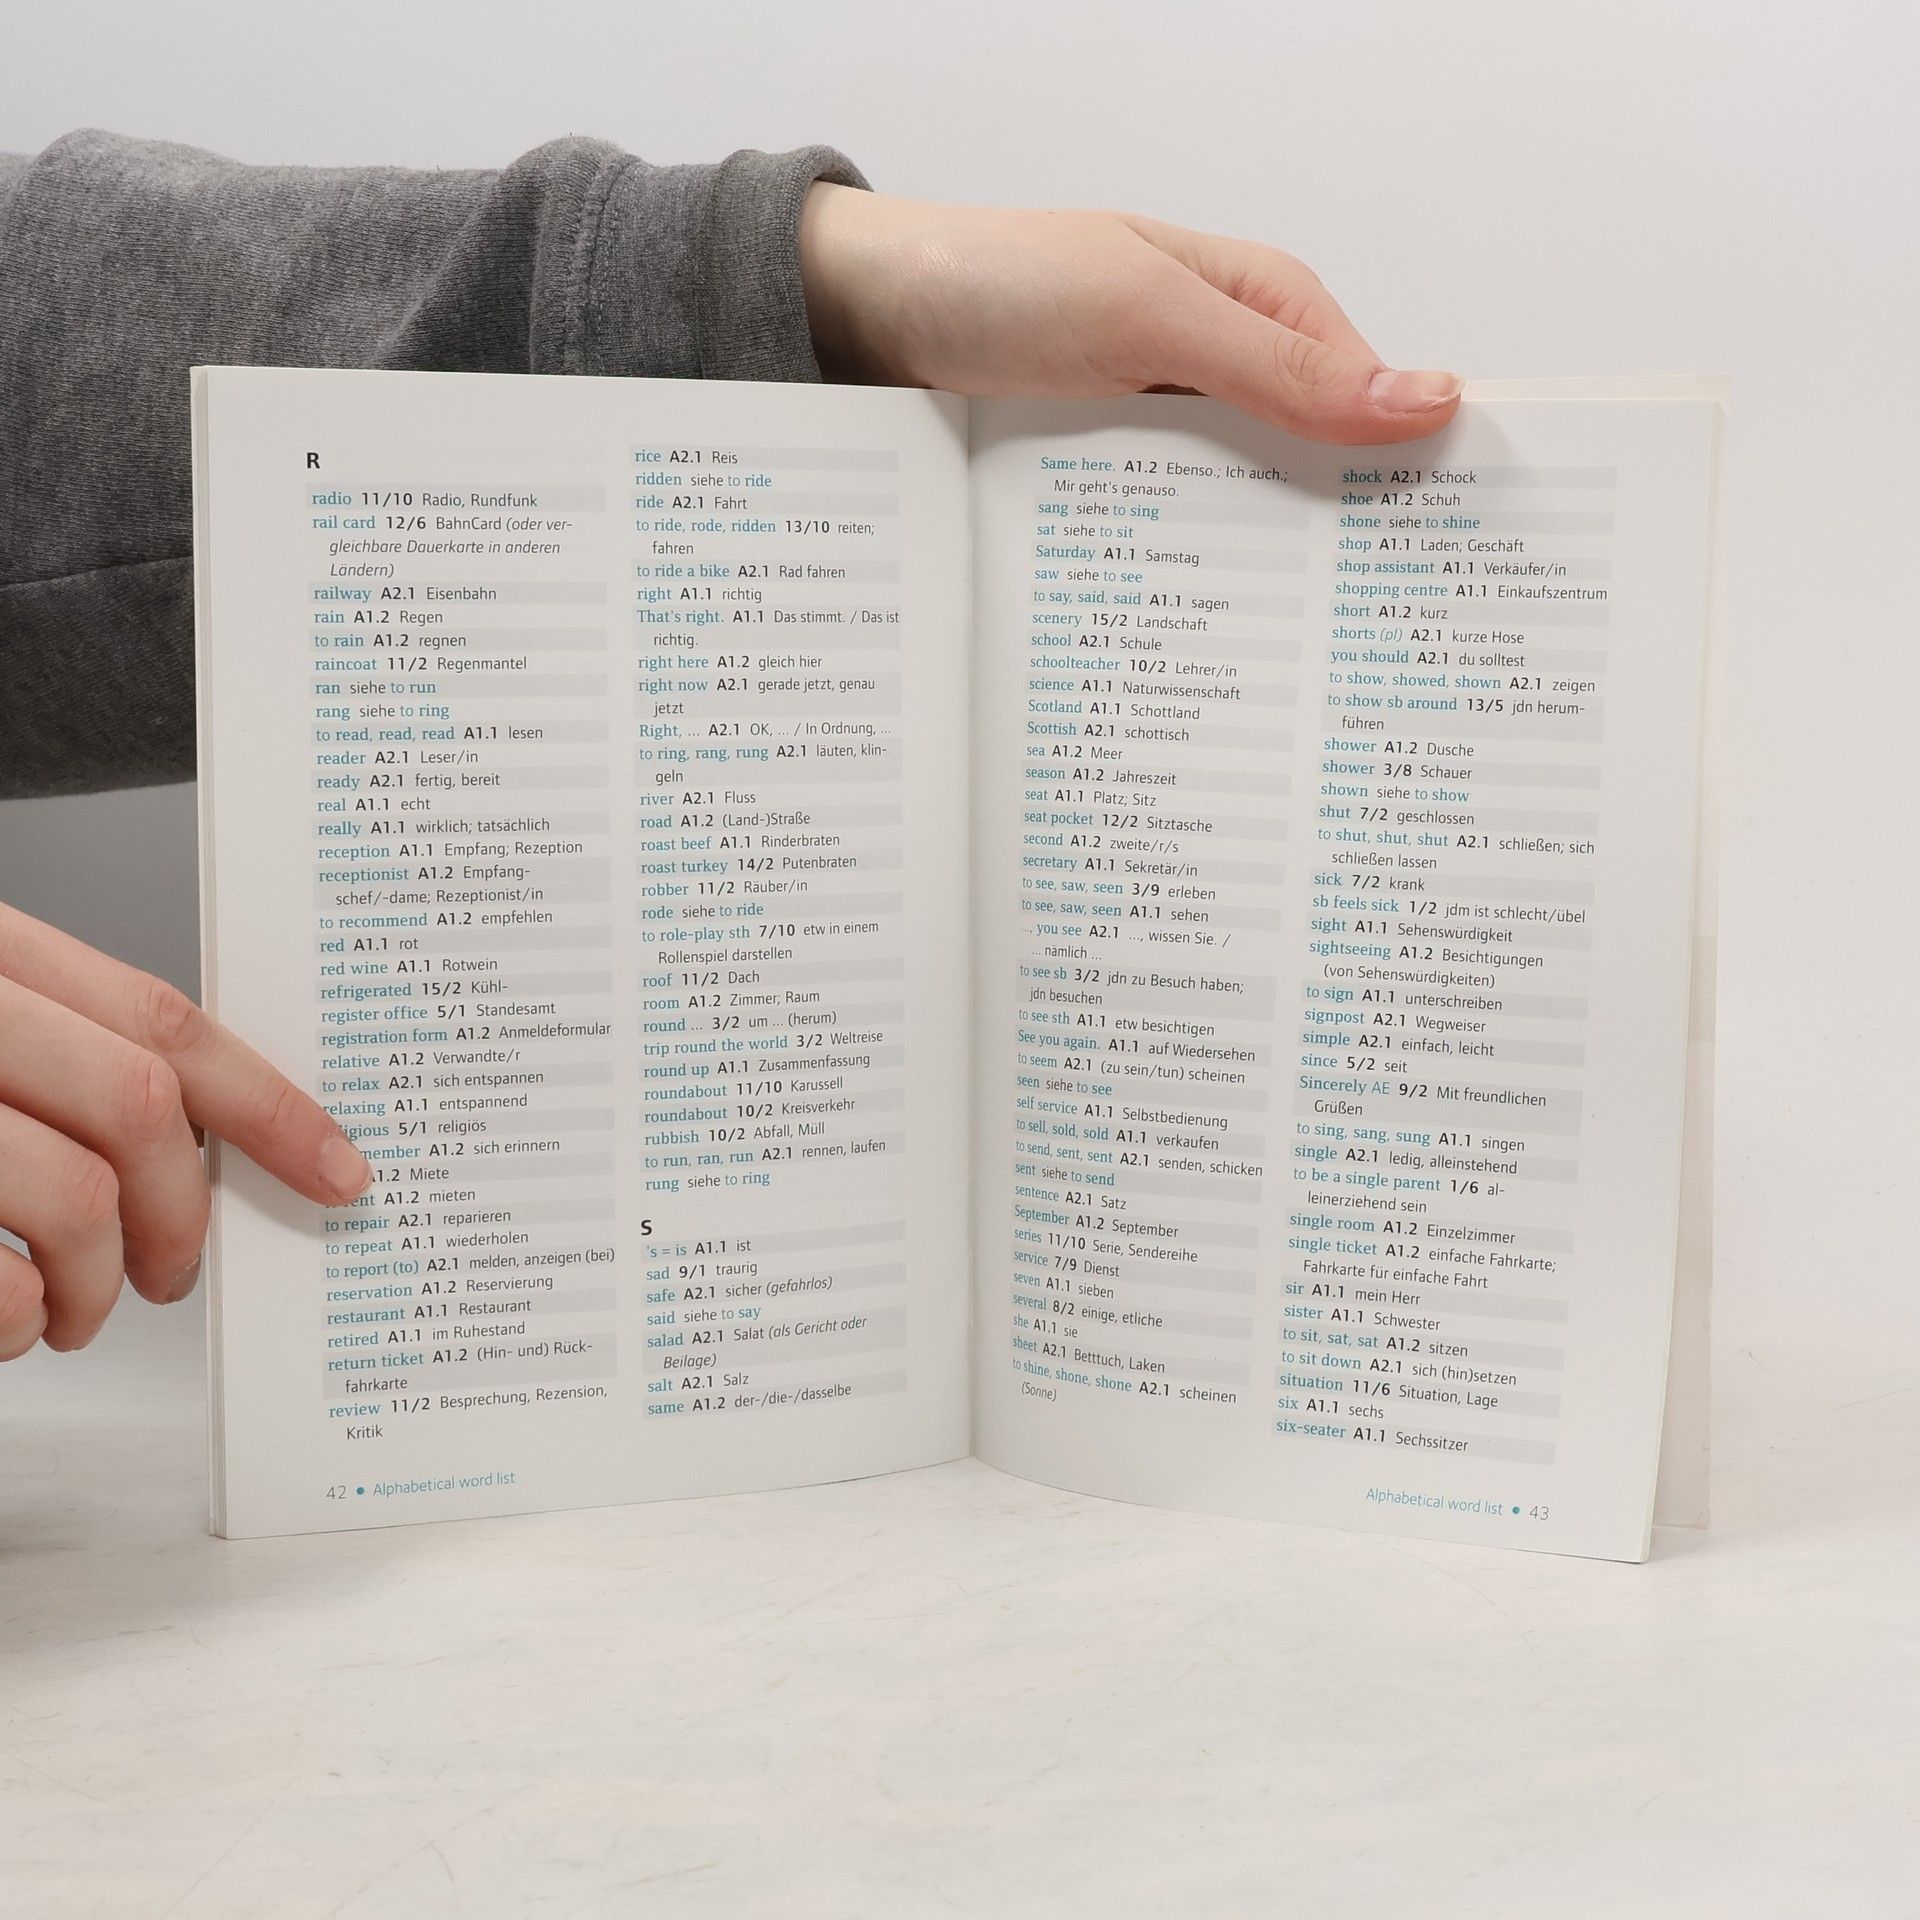 R
radio 11/10 Radio, Rundfunk
rail card 12/6 BahnCard (oder ver-
gleichbare Dauerkarte in anderen
Ländern)
railway A2.1 Eisenbahn
rain A1.2 Regen
to rain A1.2 regnen
raincoat 11/2 Regenmantel
ran siehe to run
rang siehe to ring
to read, read, read A1.1 lesen
reader A2.1 Leser/in
ready A2.1 fertig, bereit
real A1.1 echt
really A1.1 wirklich; tatsächlich
reception A1.1 Empfang; Rezeption
receptionist A1.2 Empfang-
schef/-dame; Rezeptionist/in
to recommend A1.2 empfehlen
red A1.1 rot
red wine A1.1 Rotwein
refrigerated 15/2 Kühl-
register office 5/1 Standesamt
registration form A1.2 Anmeldeformular
relative A1.2 Verwandte/r
to relax A2.1 sich entspannen
relaxing A1.1 entspannend
igious 5/1 religiös
member A1.2 sich erinnern
A1.2 Miete
ent A1.2 mieten
to repair A2.1 reparieren
to repeat A1.1 wiederholen
to report (to) A2.1 melden, anzeigen (bei)
reservation A1.2 Reservierung
restaurant A1.1 Restaurant
retired A1.1 im Ruhestand
return ticket A1.2 (Hin- und) Rück-
fahrkarte
review 11/2 Besprechung, Rezension,
Kritik
rice A2.1 Reis
ridden siehe to ride
ride A2.1 Fahrt
to ride, rode, ridden 13/10 reiten;
fahren
to ride a bike A2.1 Rad fahren
right A1.1 richtig
That's right. A1.1 Das stimmt. / Das ist
richtig.
right here A1.2 gleich hier
right now A2.1 gerade jetzt, genau
jetzt
Right, ... A2.1 OK, ... / In Ordnung, ...
to ring, rang, rung A2.1 läuten, klin-
geln
river A2.1 Fluss
road A1.2 (Land-)Straße
roast beef A1.1 Rinderbraten
roast turkey 14/2 Putenbraten
robber 11/2 Räuber/in
rode siehe to ride
to role-play sth 7/10 etw in einem
Rollenspiel darstellen
roof 11/2 Dach
room A1.2 Zimmer; Raum
round ... 3/2 um ... (herum)
trip round the world 3/2 Weltreise
round up A1.1 Zusammenfassung
roundabout 11/10 Karussell
roundabout 10/2 Kreisverkehr
rubbish 10/2 Abfall, Müll
to run, ran, run A2.1 rennen, laufen
rung siehe to ring
S
's = is A1.1 ist
sad 9/1 traurig
safe A2.1 sicher (gefahrlos)
said siehe to say
salad A2.1 Salat (als Gericht oder
Beilage)
salt A2.1 Salz
same A1.2 der-/die-/dasselbe
42 • Alphabetical word list
Same here. A1.2 Ebenso.; Ich auch.;
Mir geht's genauso.
sang siehe to sing
sat siehe to sit
Saturday A1.1 Samstag
saw siehe to see
to say, said, said A1.1 sagen
scenery 15/2 Landschaft
school A2.1 Schule
schoolteacher 10/2 Lehrer/in
science A1.1 Naturwissenschaft
Scotland A1.1 Schottland
Scottish A2.1 schottisch
sea A1.2 Meer
season A1.2 Jahreszeit
seat A1.1 Platz; Sitz
seat pocket 12/2 Sitztasche
second A1.2 zweite/r/s
secretary A1.1 Sekretär/in
to see, saw, seen 3/9 erleben
to see, saw, seen A1.1 sehen
..., you see A2.1 ..., wissen Sie. /
... nämlich ...
to see sb 3/2 jdn zu Besuch haben;
jdn besuchen
to see sth A1.1 etw besichtigen
See you again. A1.1 auf Wiedersehen
to seem A2.1 (zu sein/tun) scheinen
seen siehe to see
self service A1.1 Selbstbedienung
to sell, sold, sold A1.1 verkaufen
to send, sent, sent A2.1 senden, schicken
sent siehe to send
sentence A2.1 Satz
September A1.2 September
series 11/10 Serie, Sendereihe
service 7/9 Dienst
seven A1.1 sieben
several 8/2 einige, etliche
she A1.1 sie
sheet A2.1 Betttuch, Laken
to shine, shone, shone A2.1 scheinen
(Sonne)
shock A2.1 Schock
shoe A1.2 Schuh
shone siehe to shine
shop A1.1 Laden; Geschäft
shop assistant A1.1 Verkäufer/in
shopping centre A1.1 Einkaufszentrum
short A1.2 kurz
shorts (pl) A2.1 kurze Hose
you should A2.1 du solltest
to show, showed, shown A2.1 zeigen
to show sb around 13/5 jdn herum-
führen
shower A1.2 Dusche
shower 3/8 Schauer
shown siehe to show
shut 7/2 geschlossen
to shut, shut, shut A2.1 schließen; sich
schließen lassen
sick 7/2 krank
sb feels sick 1/2 jdm ist schlecht/übel
sight A1.1 Sehenswürdigkeit
sightseeing A1.2 Besichtigungen
(von Sehenswürdigkeiten)
to sign A1.1 unterschreiben
signpost A2.1 Wegweiser
simple A2.1 einfach, leicht
since 5/2 seit
Sincerely AE 9/2 Mit freundlichen
Grüßen
to sing, sang, sung A1.1 singen
single A2.1 ledig, alleinstehend
to be a single parent 1/6 al-
leinerziehend sein
single room A1.2 Einzelzimmer
single ticket A1.2 einfache Fahrkarte;
Fahrkarte für einfache Fahrt
sir A1.1 mein Herr
sister A1.1 Schwester
to sit, sat, sat A1.2 sitzen
to sit down A2.1 sich (hin)setzen
situation 11/6 Situation, Lage
six A1.1 sechs
six-seater A1.1 Sechssitzer
Alphabetical word list • 43